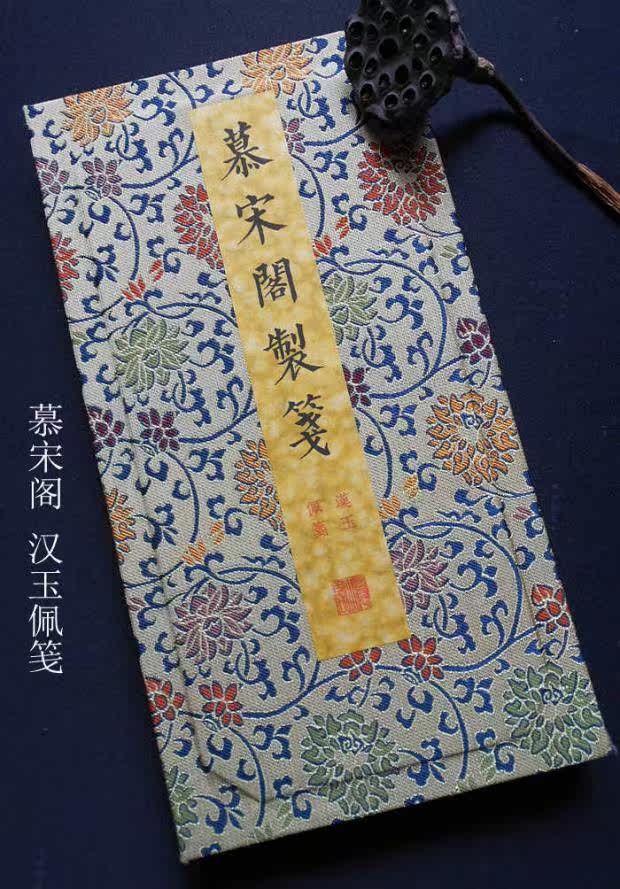 慕宋閣製箋
漢玉
佩箋
慕宋阁 汉玉佩笺